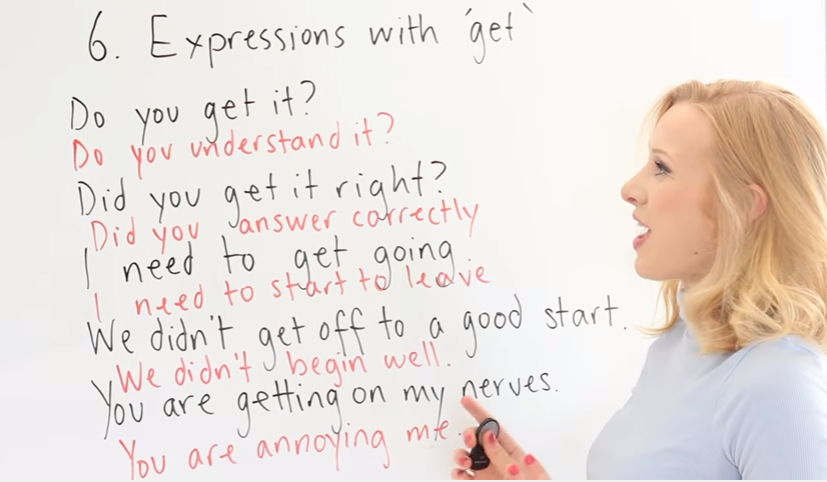 6. Expressions with 'get'
Do you get it?
Do you understand it?
Did you get it right?
Did you answer correctly
I need to get going.
I need to start to leave
We didn't get off to a good start.
We didn't begin well.
You are getting on my nerves.
You are annoying me.